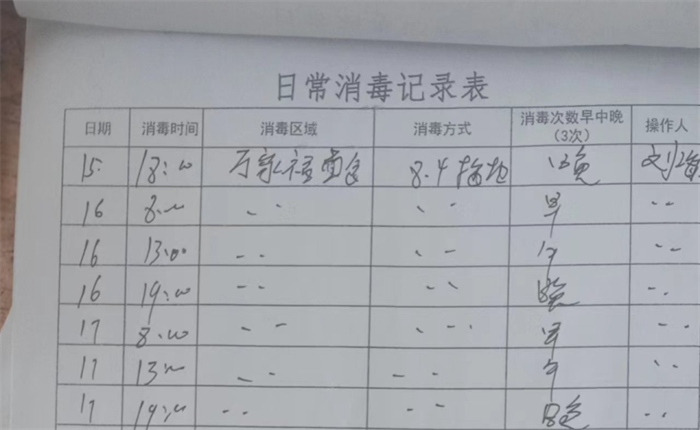 日常消毒记录表
日期 消毒时间 消毒区域 消毒方式 消毒次数早中晚（3次） 操作人
15 18:00 万家福 8.4拖地 晚 刘
16 8:00 〃 〃 早 〃
16 13:00 〃 〃 午 〃
16 19:00 〃 〃 晚 〃
17 8:00 〃 〃 早 〃
17 13:00 〃 〃 午 〃
17 19:00 〃 〃 晚